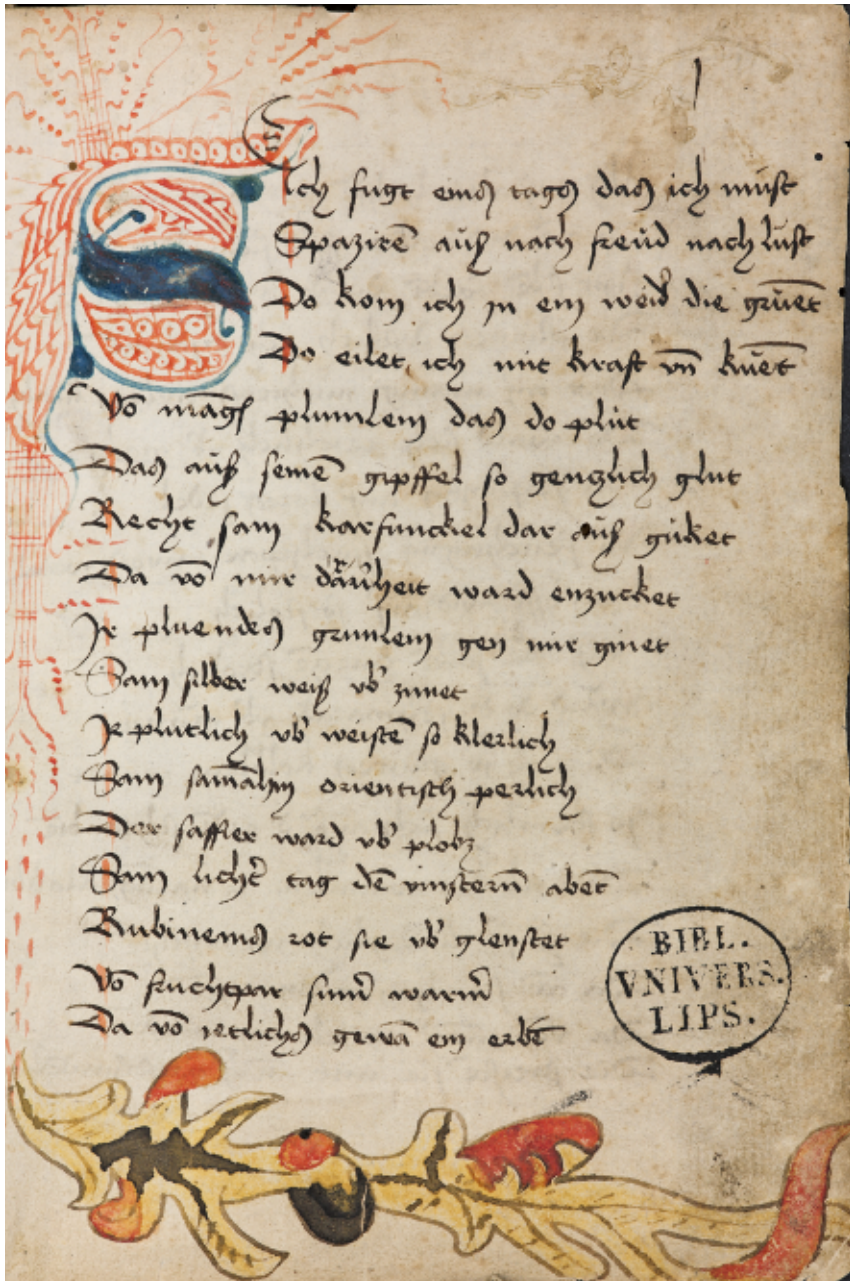 Sich fugt eins tags das ich must
Spaziren̄ auß nach freud nach lust
Do kom ich in ein weid̉ die gruēt
Do eilet ich mit kraft vn̄ kuēt
Vō plumlein das do plut
Das auß seinē gipffel so genczlich glut
Recht sam karfunckel dar auß guket
Da vō mir ward enzucket
Ir pluendes grunlein gen mir ginet
Sam silber weiß vb̉ zinet
Ir plutlich vb̉ weistē so klerlich
Sam orientisch perlich
Der saffier ward vb̉
Sam licht̉ tag dē vinsterñ abēt
Rubineins rot sie vb̉ glenstet
Vō fruchtpar sum̄ warm̄
Da vō ietlichs gewā ein erbē
BIBL.
VNIVERS.
LIPS.